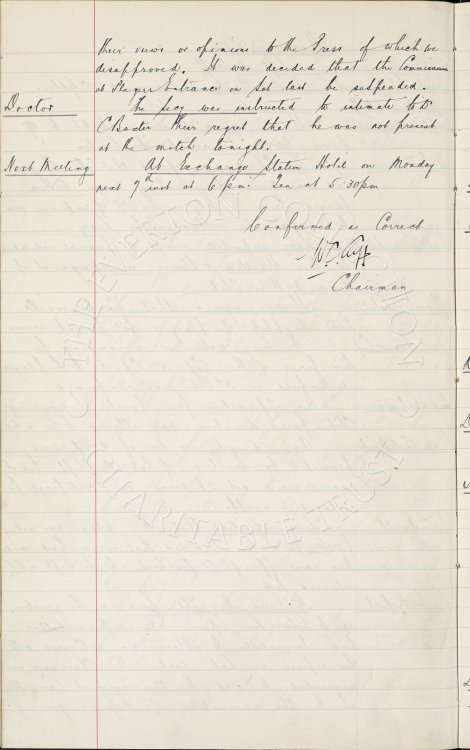 their views or opinions to the Press of which we
disapproved. It was decided that the Commissionaire
at Players Entrance on Sat last be suspended.
Doctor The secy was instructed to intimate to Dr
C Baxter their regret that he was not present
at the match tonight.
Next Meeting At Exchange Station Hotel on Monday
next 7th inst at 6 pm. Tea at 5.30pm
Confirmed as Correct
W.C. Cuff
Chairman
THE EVERTON COLLECTION
CHARITABLE TRUST